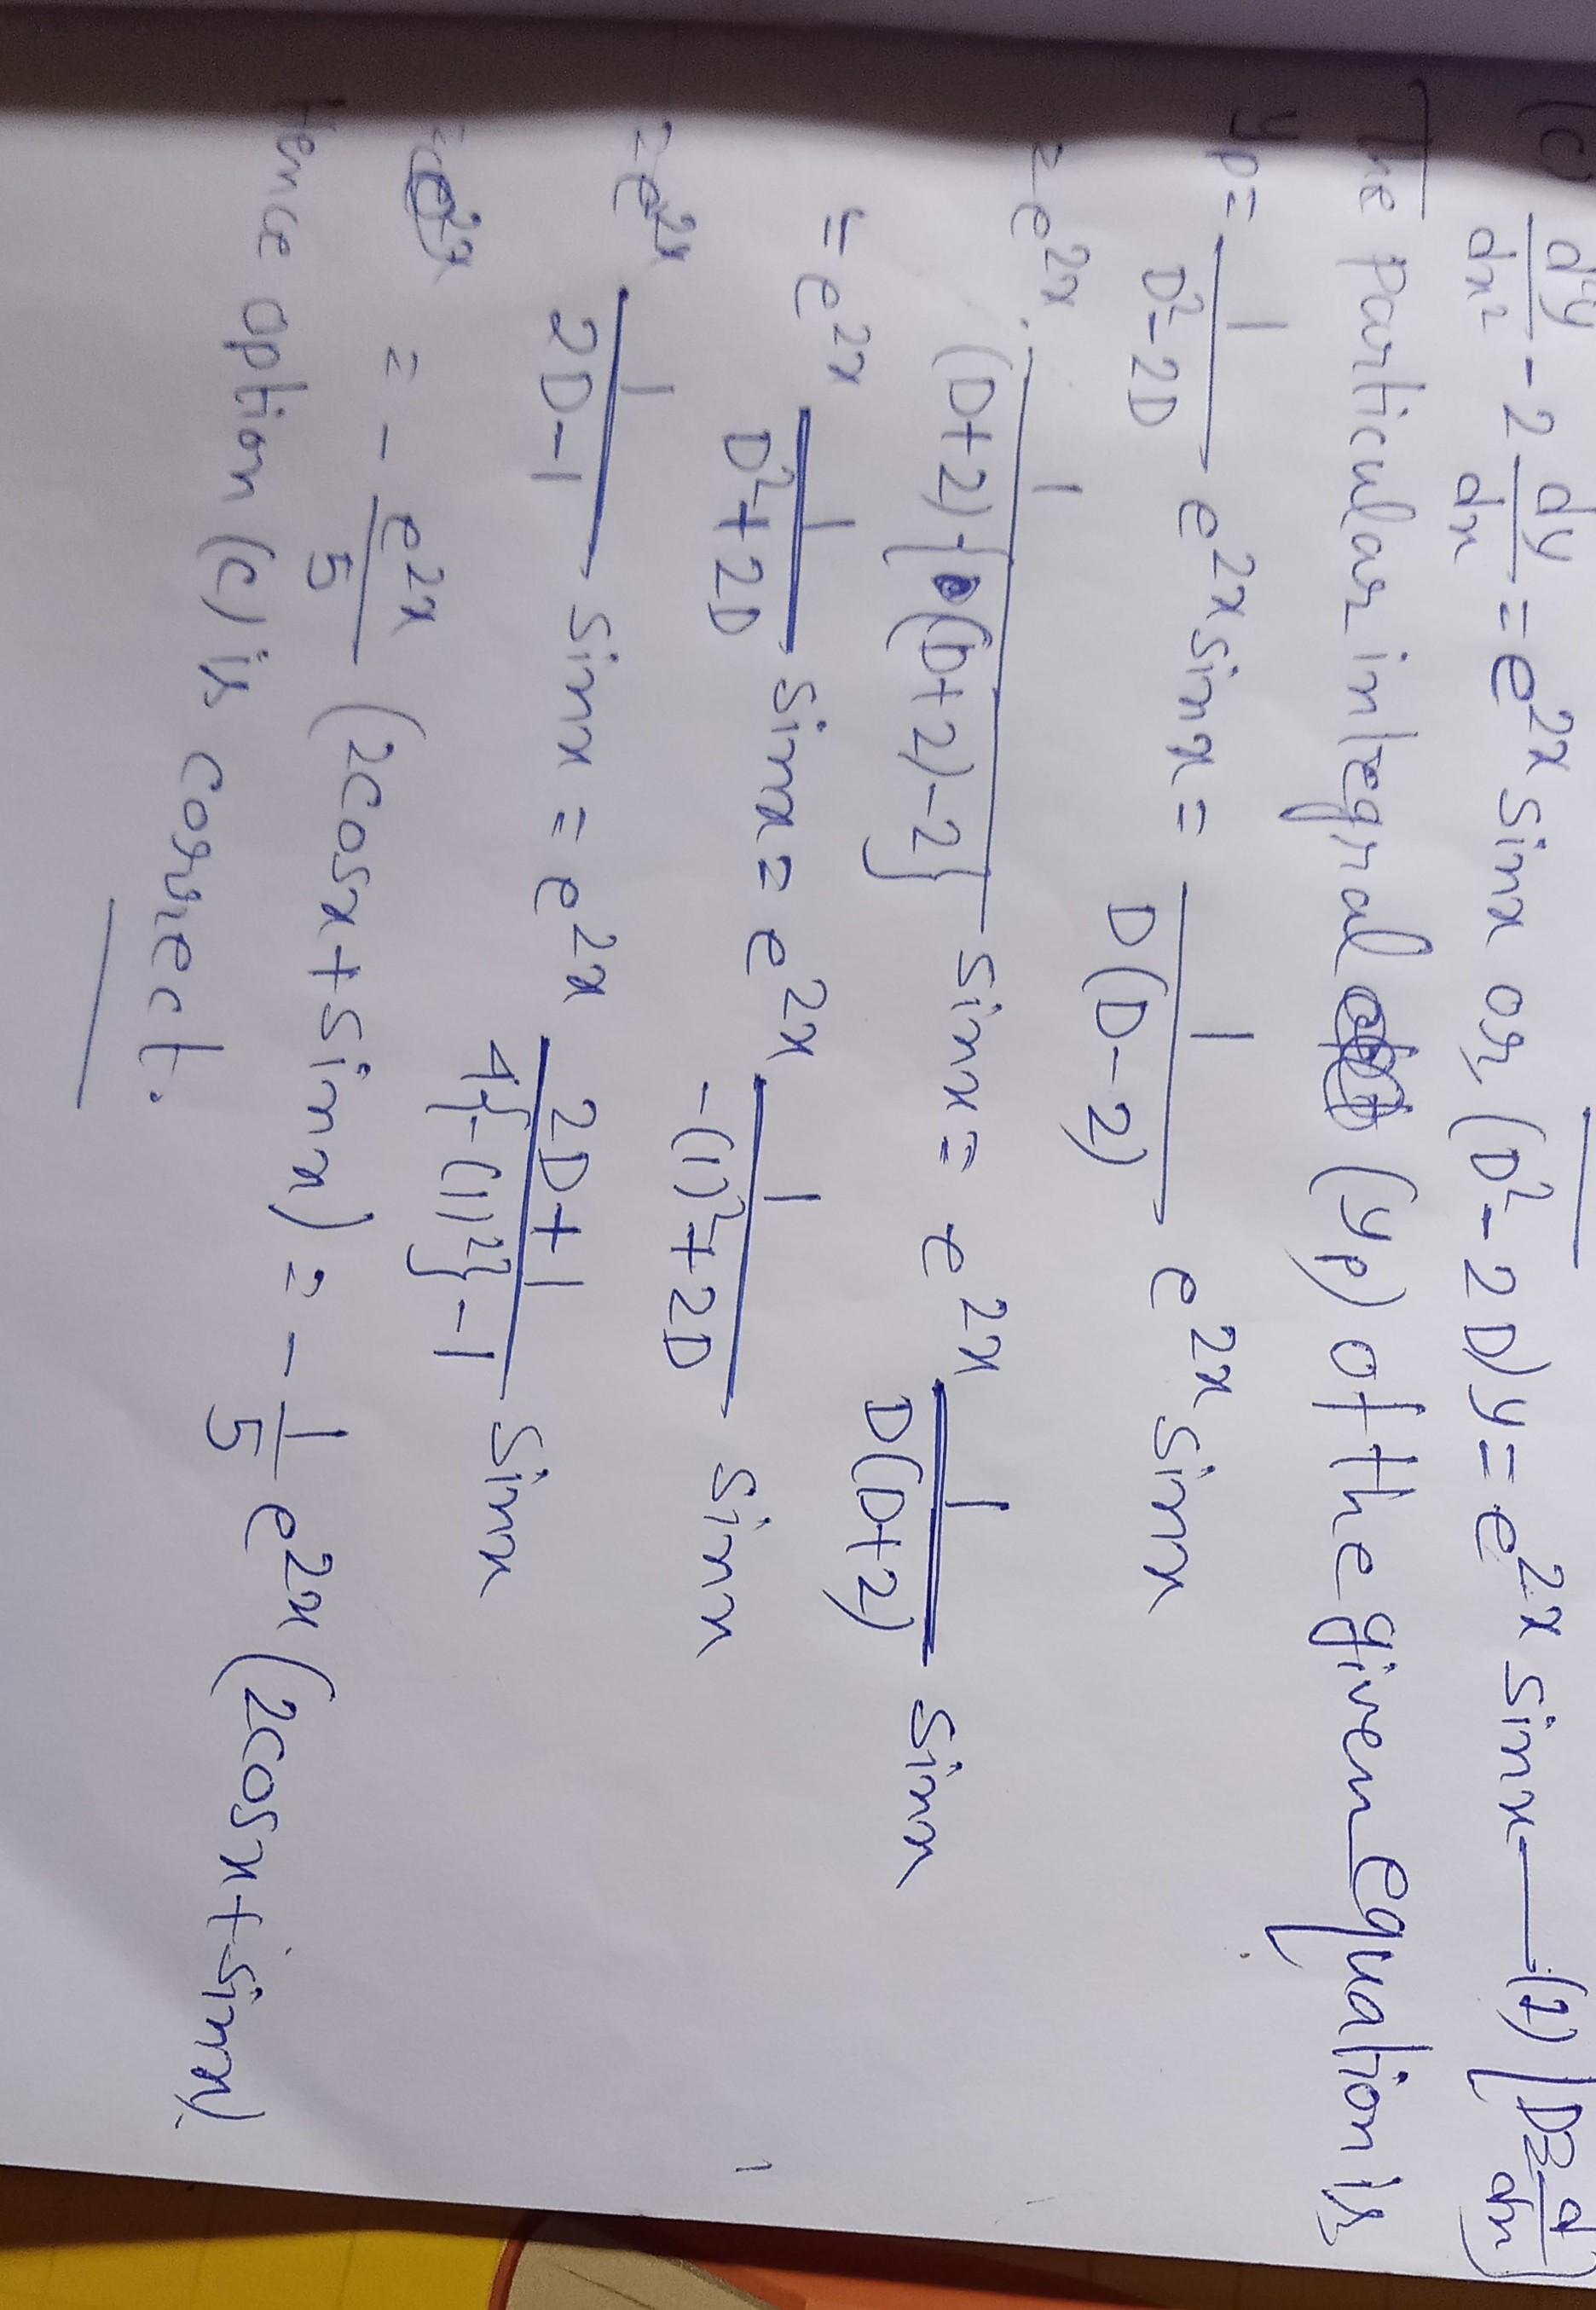 (c) d²y/dx² - 2 dy/dx = e^2x sinx or, (D² - 2D)y = e^2x sinx —— (1) [D = d/dx]
The particular integral (yp) of the given equation is
yp = 1/(D² - 2D) e^2x sinx = 1/(D(D - 2)) e^2x sinx
= e^2x 1/((D+2){(D+2) - 2}) sinx = e^2x 1/(D(D+2)) sinx
= e^2x 1/(D² + 2D) sinx = e^2x 1/(-(1)² + 2D) sinx
= e^2x 1/(2D - 1) sinx = e^2x (2D + 1)/(4{-(1)²} - 1) sinx
= - e^2x/5 (2cosx + sinx) = - 1/5 e^2x (2cosx + sinx)
Hence option (c) is correct.